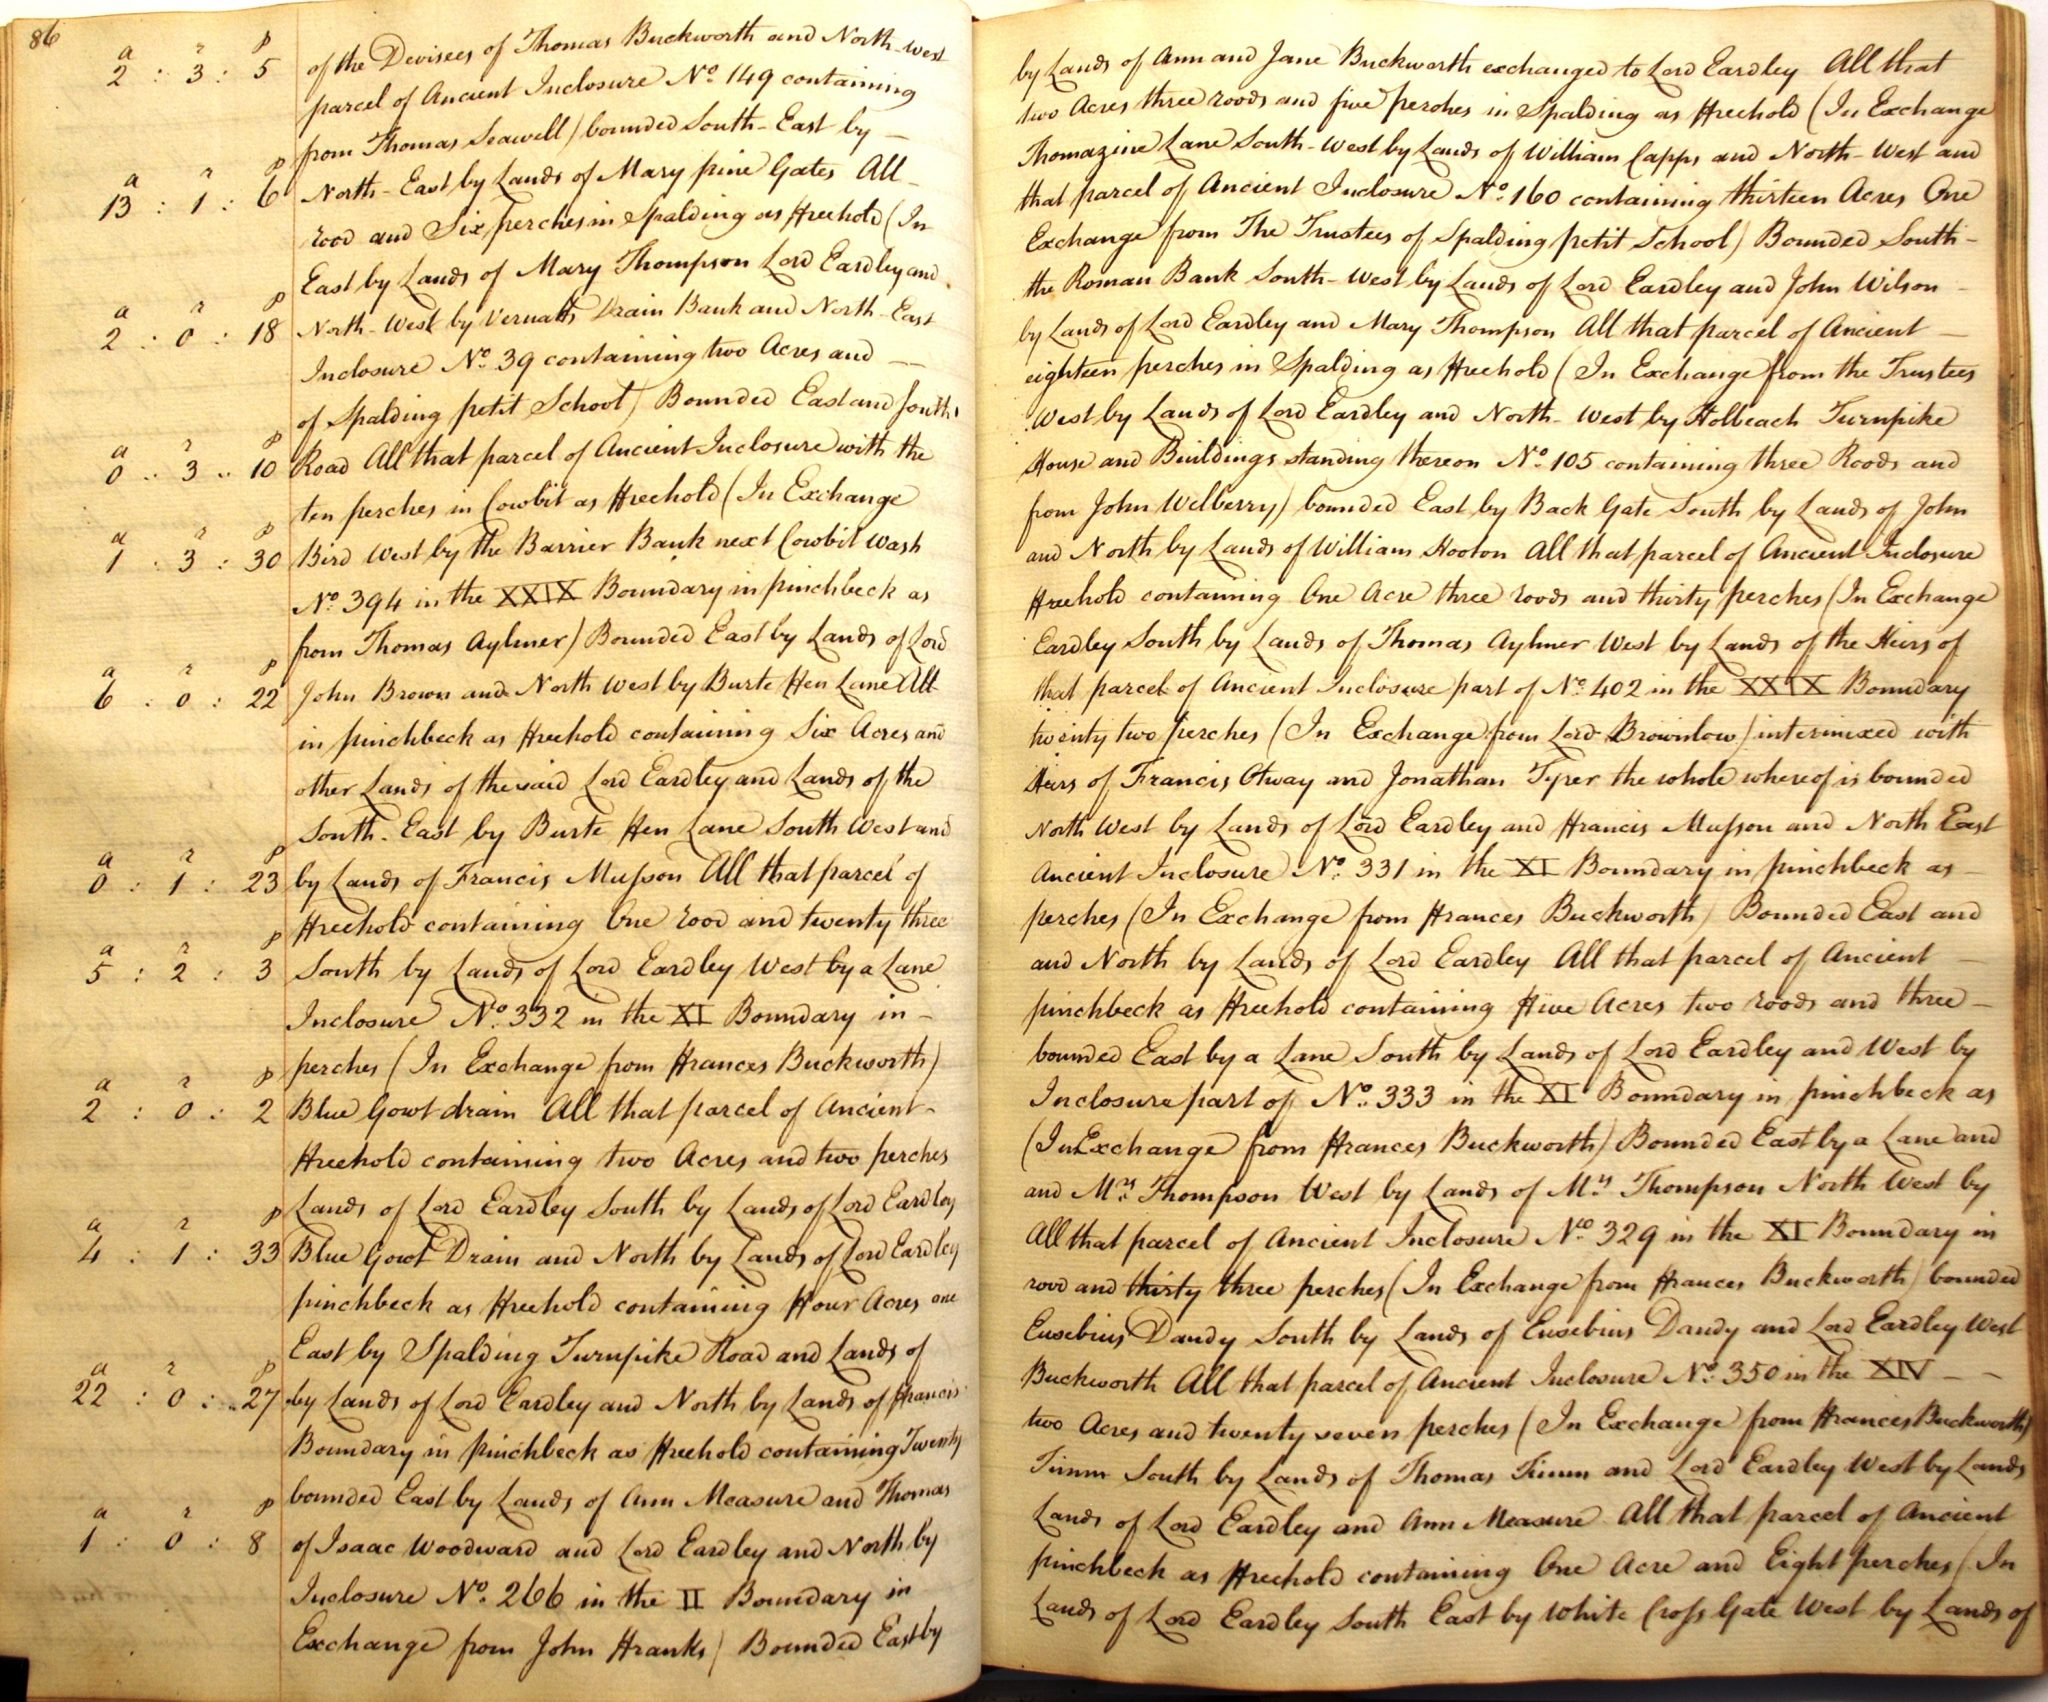 86
a r p
2 : 3 : 5 of the Devisees of Thomas Buckworth and North-West by Lands of Ann and Jane Buckworth exchanged to Lord Eardley All that
parcel of Ancient Inclosure No. 149 containing two Acres three roods and five perches in Spalding as Freehold (In Exchange
from Thomas Seawell) bounded South-East by — Thomazine Lane South-West by Lands of William Capps and North-West and
a r p
13 : 1 : 6 North-East by Lands of Mary pine Gates All — that parcel of Ancient Inclosure No. 160 containing thirteen Acres One
rood and Six perches in Spalding as Freehold (In Exchange from The Trustees of Spalding petit School) Bounded South-
East by Lands of Mary Thompson Lord Eardley and the Roman Bank South-West by Lands of Lord Eardley and John Wilson —
a r p
2 : 0 : 18 North-West by Vernatts Drain Bank and North-East by Lands of Lord Eardley and Mary Thompson All that parcel of Ancient —
Inclosure No. 39 containing two Acres and — eighteen perches in Spalding as Freehold (In Exchange from the Trustees
of Spalding petit School) Bounded East and South West by Lands of Lord Eardley and North-West by Holbeach Turnpike
a r p
0 : 3 : 10 Road All that parcel of Ancient Inclosure with the House and Buildings standing thereon No. 105 containing three Roods and
ten perches in Cowbit as Freehold (In Exchange from John Welberry) bounded East by Back Gate South by Lands of John
a r p
1 : 3 : 30 Bird West by the Barrier Bank next Cowbit Wash and North by Lands of William Hooton All that parcel of Ancient Inclosure
No. 394 in the XXIX Boundary in pinchbeck as Freehold containing One Acre three roods and thirty perches (In Exchange
from Thomas Aylmer) Bounded East by Lands of Lord Eardley South by Lands of Thomas Aylmer West by Lands of the Heirs of
a r p
6 : 0 : 22 John Brown and North West by Burte Hen Lane All that parcel of Ancient Inclosure part of No. 402 in the XXIX Boundary
in pinchbeck as Freehold containing Six Acres and twenty two perches (In Exchange from Lord Brownlow) intermixed with
other Lands of the said Lord Eardley and Lands of the Heirs of Francis Otway and Jonathan Tyrer the whole whereof is bounded
South-East by Burte Hen Lane South West and North West by Lands of Lord Eardley and Francis Musson and North East
a r p
0 : 1 : 23 by Lands of Francis Musson All that parcel of Ancient Inclosure No. 331 in the XI Boundary in pinchbeck as —
Freehold containing One rood and twenty three perches (In Exchange from Frances Buckworth) Bounded East and
a r p
5 : 2 : 3 South by Lands of Lord Eardley West by a Lane and North by Lands of Lord Eardley All that parcel of Ancient —
Inclosure No. 332 in the XI Boundary in — pinchbeck as Freehold containing Five Acres two roods and three —
perches (In Exchange from Frances Buckworth) bounded East by a Lane South by Lands of Lord Eardley and West by
a r p
2 : 0 : 2 Blue Gowt drain All that parcel of Ancient- Inclosure part of No. 333 in the XI Boundary in pinchbeck as
Freehold containing two Acres and two perches (In Exchange from Frances Buckworth) Bounded East by a Lane and
Lands of Lord Eardley South by Lands of Lord Eardley and Mrs. Thompson West by Lands of Mrs. Thompson North West by
a r p
4 : 1 : 33 Blue Gowt Drain and North by Lands of Lord Eardley All that parcel of Ancient Inclosure No. 329 in the XI Boundary in
pinchbeck as Freehold containing Four Acres one rood and thirty three perches (In Exchange from Frances Buckworth) bounded
East by Spalding Turnpike Road and Lands of Eusebius Dandy South by Lands of Eusebius Dandy and Lord Eardley West
a r p
22 : 0 : 27 by Lands of Lord Eardley and North by Lands of Francis Buckworth All that parcel of Ancient Inclosure No. 350 in the XIV — —
Boundary in pinchbeck as Freehold containing Twenty two Acres and twenty seven perches (In Exchange from Frances Buckworth)
bounded East by Lands of Ann Measure and Thomas Timm South by Lands of Thomas Timm and Lord Eardley West by Lands
a r p
1 : 0 : 8 of Isaac Woodward and Lord Eardley and North by Lands of Lord Eardley and Ann Measure All that parcel of Ancient
Inclosure No. 266 in the II Boundary in pinchbeck as Freehold containing One Acre and Eight perches (In
Exchange from John Franks) Bounded East by Lands of Lord Eardley South East by White Cross Gate West by Lands of